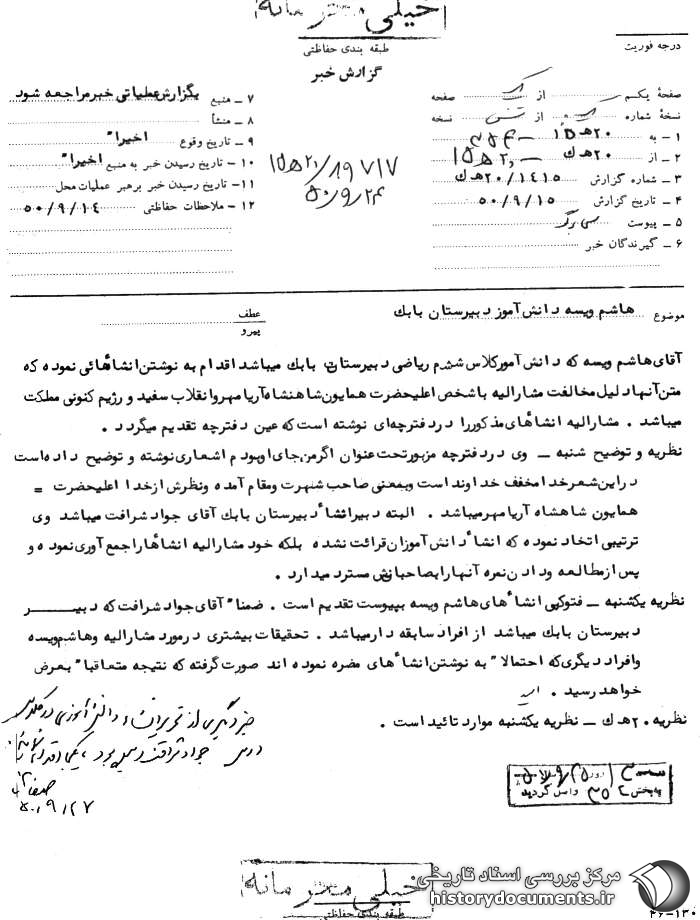 خیلی محرمانه
طبقه بندی حفاظتی
درجه فوریت
گزارش خبر
صفحهٔ یکم از صفحه
نسخهٔ شماره از نسخه
۱ – به
۲ – از ۲۰ ه‍ ك
۳ – شماره گزارش ۲۰/۱۴۱۵ ه‍ ك
۴ – تاریخ گزارش ۵۰/۹/۱۵
۵ – پیوست
۶ – گیرندگان خبر
۷ – منبع بگزارش عملیاتی خبر مراجعه شود
۸ – منشأ
۹ – تاریخ وقوع اخیرا"
۱۰ – تاریخ رسیدن خبر به منبع اخیرا"
۱۱ – تاریخ رسیدن خبر برهبر عملیات محل
۱۲ – ملاحظات حفاظتی ۵۰/۹/۱۴
۵۰/۹/۲۴
موضوع هاشم ویسه دانش آموز دبیرستان بابك
عطف
پیرو
آقای هاشم ویسه که دانش آموز کلاس ششم ریاضی دبیرستان بابك میباشد اقدام به نوشتن انشاءهائی نموده که
متن آنها دلیل مخالفت مشارالیه با شخص اعلیحضرت همایون شاهنشاه آریامهر و انقلاب سفید و رژیم کنونی مملکت
میباشد . مشارالیه انشاءهای مذکور را در دفترچه‌ای نوشته است که عین دفترچه تقدیم میگردد .
نظریه و توضیح شنبه – وی در دفترچه مزبور تحت عنوان اگر من جای او بودم اشعاری نوشته و توضیح داده است
در این شعر خدا مخفف خداوند است و بمعنی صاحب شهرت و مقام آمده و نظرش از خدا اعلیحضرت =
همایون شاهشاه آریامهر میباشد . البته دبیر انشاء دبیرستان بابك آقای جواد شرافت میباشد وی
ترتیبی اتخاذ نموده که انشاء دانش آموزان قرائت نشده بلکه خود مشارالیه انشاءها را جمع آوری نموده و
پس از مطالعه و دادن نمره آنها را بصاحبانش مسترد میدارد .
نظریه یکشنبه – فتوکپی انشاء های هاشم ویسه بپیوست تقدیم است . ضمنا" آقای جواد شرافت که دبیر
دبیرستان بابك میباشد از افراد سابقه دار میباشد . تحقیقات بیشتری در مورد مشارالیه و هاشم ویسه
و افراد دیگری که احتمالا" به نوشتن انشاء های مضره نموده اند صورت گرفته که نتیجه متعاقبا" بعرض
خواهد رسید .
نظریه ۲۰ ه‍ ك – نظریه یکشنبه موارد تائید است .
۵۰/۹/۲۷
به بخش ۳۵۲ واصل گردید
خیلی محرمانه
طبقه بندی حفاظتی
مرکز بررسی اسناد تاریخی
historydocuments.ir
۲۶-۱۳۰